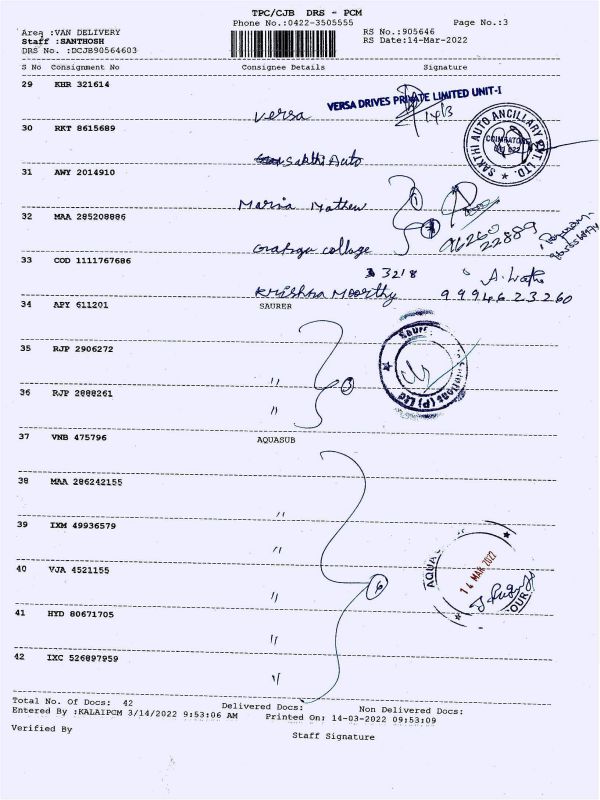 TPC/CJB DRS - PCM
Phone No.:0422-3505555 Page No.:3
Area :VAN DELIVERY RS No.:905646
Staff :SANTHOSH RS Date:14-Mar-2022
DRS No. :DCJB90564603
S No Consignment No Consignee Details Signature
29 KHR 321614
Versa VERSA DRIVES PRIVATE LIMITED UNIT-I
14/3
30 RKT 8615689
Sakthi Auto SAKTHI AUTO ANCILLARY PVT. LTD. COIMBATORE
31 AWY 2014910
Marina Mathew 1
32 MAA 285208886
college 96260 22889
33 COD 1111767686
3218
Krishna Moorthy 99946 23260
34 APY 611201 SAURER
35 RJP 2906272
" 3
36 RJP 2888261
"
37 VNB 475796 AQUASUB
38 MAA 286242155
"
39 IXM 49936579
"
40 VJA 4521155 6 AQUA 14 MAR 2022
"
41 HYD 80671705
"
42 IXC 526897959
"
Total No. Of Docs: 42 Delivered Docs: Non Delivered Docs:
Entered By :KALAIPCM 3/14/2022 9:53:06 AM Printed On: 14-03-2022 09:53:09
Verified By Staff Signature